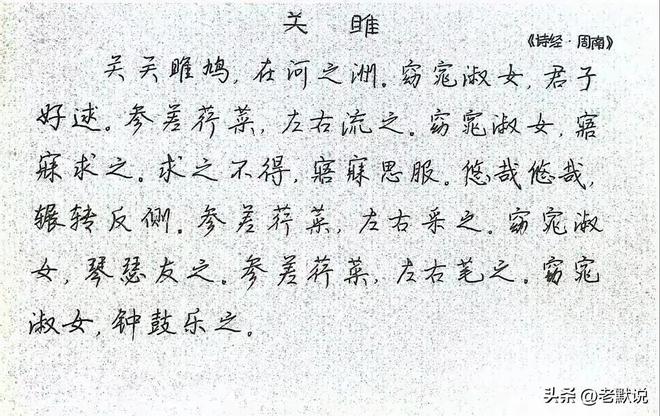 关雎
《诗经·周南》
关关雎鸠,在河之洲。窈窕淑女,君子
好逑。参差荇菜,左右流之。窈窕淑女,寤
寐求之。求之不得,寤寐思服。悠哉悠哉,
辗转反侧。参差荇菜,左右采之。窈窕淑
女,琴瑟友之。参差荇菜,左右芼之。窈窕
淑女,钟鼓乐之。
头条 @老默说